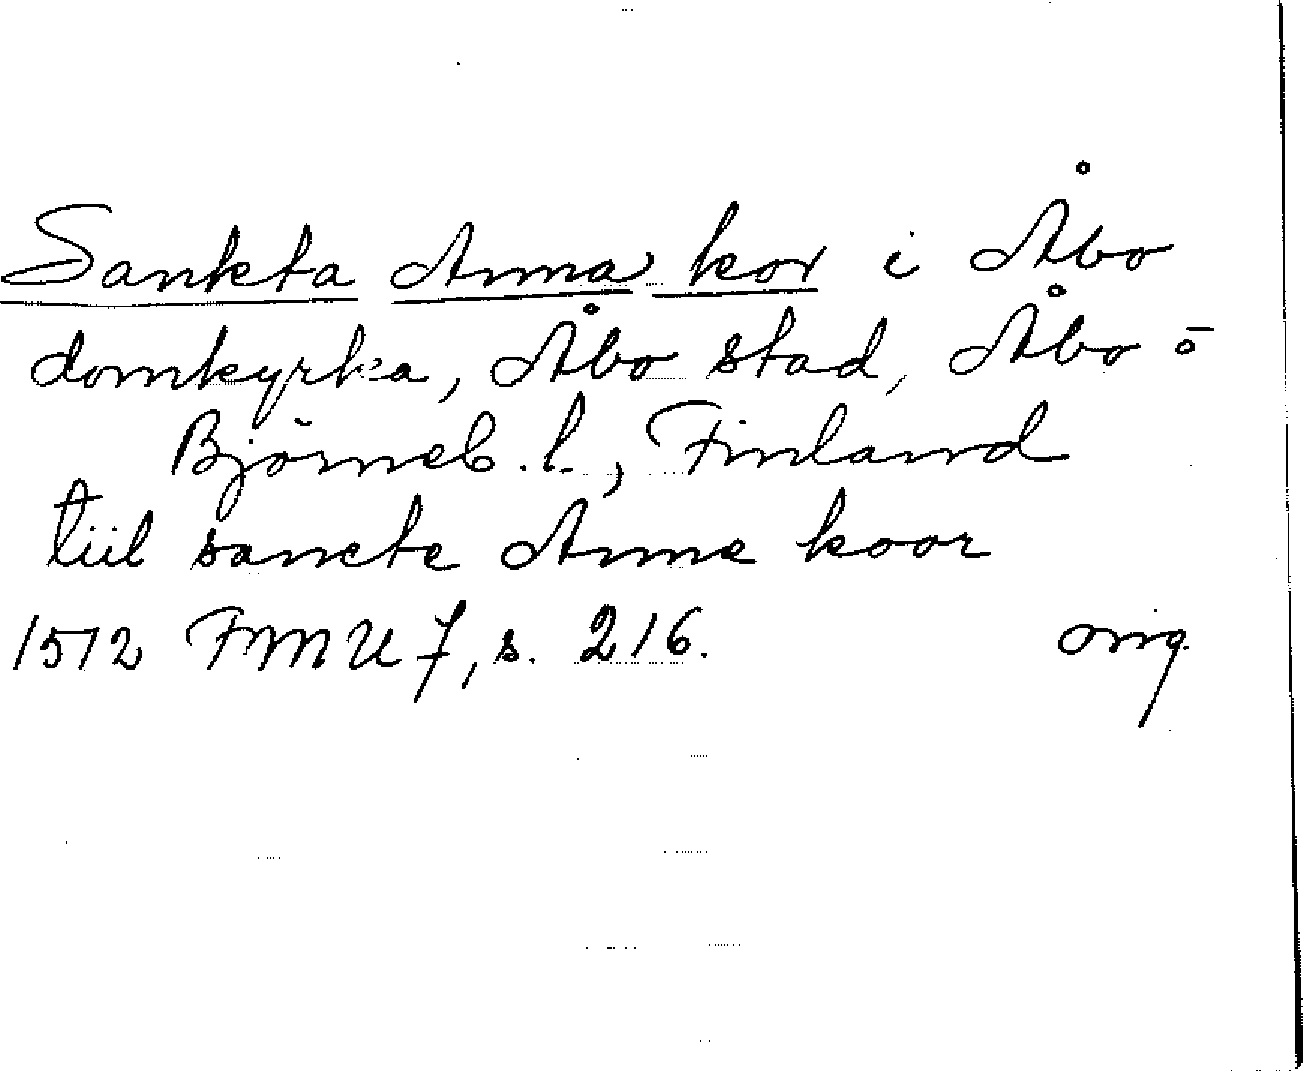 Sankta Anna kor i Åbo
domkyrka, Åbo stad, Åbo o
Björneb. l., Finland
tiil sancte Anne koor
1512 FMU 7, s. 216. orig.